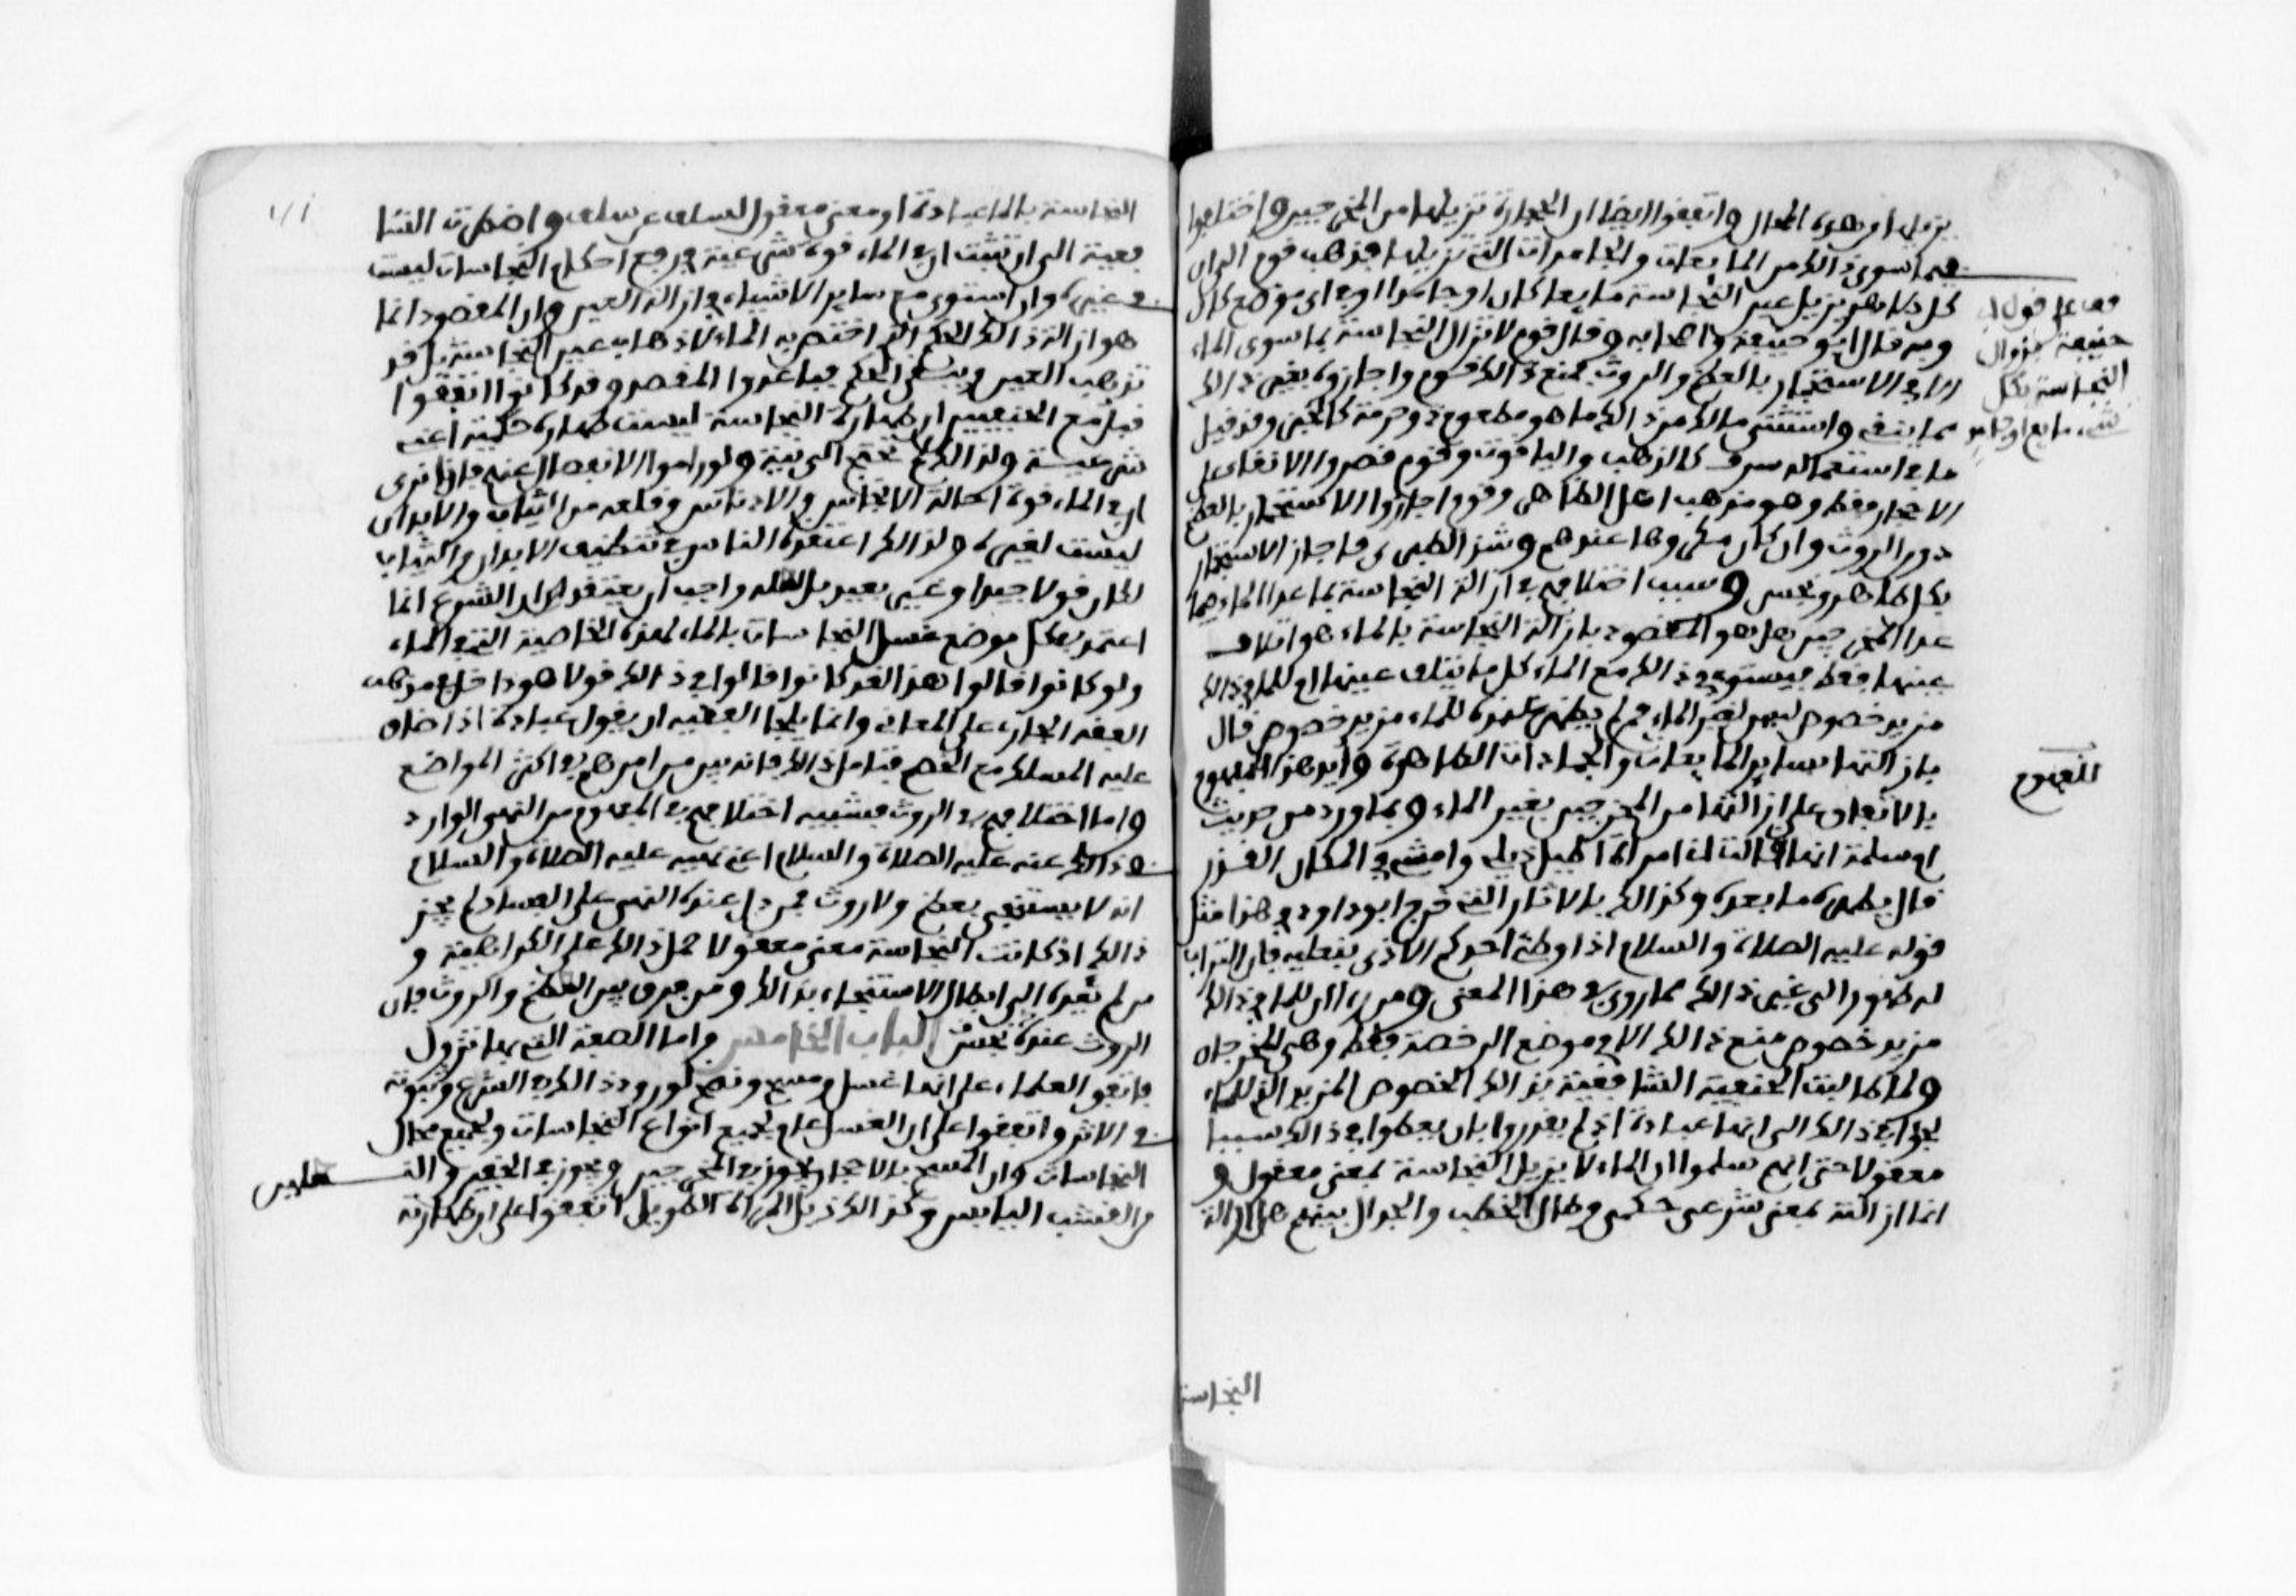 يزيلها من هذه المحال واتفقوا ايضا ان الحجارة تزيلها من المخرجين واختلفوا
فيما سوى ذالك من المايعات والجامدات التي تزيلها فذهب قوم الى ان
كل طاهر يزيل عين النجاسة مايعا كان او جامدا وفي اي موضع كان
وبه قال ابو حنيفة واصحابه وقال قوم لا تزال النجاسة بما سوى الماء
الا في الاستجمار بالعظم والروث فمنع ذالك قوم واجازوه بغير ذالك
مما ينقي واستثنى مالك من ذالك ما هو مطعوم ذو حرمة كالخبز وقد قيل
ما في استعماله سرف كالذهب والياقوت وقوم قصروا الانقاء على
الاحجار فقط وهو مذهب اهل الظاهر وقوم اجازوا الاستجمار بالعظم
دون الروث وان كان مكروها عندهم وشذ الطبري فاجاز الاستجمار
بكل طاهر ونجس وسبب اختلافهم في ازالة النجاسة بما عدا الماء فيما
عدا المخرجين هل هو المقصود بازالة النجاسة بالماء هو اتلاف
عينها فقط فيستوي في ذالك مع الماء كل ما يتلف عينها ام للماء في ذالك
مزيد خصوص ليس لغير الماء فمن لم يظهر عنده للماء مزيد خصوص قال
بازالتها بساير المايعات والجمادات الطاهرة وايد هذا المفهوم
بالاتفاق على ازالتها من المخرجين بغير الماء وبما ورد من حديث
ام سلمة انها قالت اني امراة اطيل ذيلي وامشي في المكان القذر
قال يطهره ما بعده وكذالك بالاثار التي خرج ابو داود في هذا مثل
قوله عليه الصلاة والسلام اذا وطئ احدكم الاذى بنعليه فان التراب
له طهور الى غير ذالك مما روي في هذا المعنى ومن راى ان للماء في ذالك
مزيد خصوص منع ذالك الا في موضع الرخصة فقط وهي المخرجان
ولما طالبت الحنفية الشافعية بذالك الخصوص المزيد الذي للماء
لجوا في ذالك الى انها عبادة اذ لم يقدروا ان يعطوا في ذالك سببا
معقولا حتى انهم سلموا ان الماء لا يزيل النجاسة بمعنى معقول و
انما ازالته بمعنى شرعي حكمي وطال الخطب والجدال بينهم هل ازالة
قف على قول ابي
حنيفة بزوال
النجاسة بكل
شيء مايع او جامد
المفهوم
النجاسة
النجاسة بالماء عبادة او معنى معقول لسلف عن سلف واضطرت الشا
فعية الى ان تثبت ان في الماء قوة شرعية في رفع احكام النجاسات ليست
في غيره وان استوى مع ساير الاشياء في ازالة العين وان المقصود انما
هو ازالة ذالك الحكم الذي اختص به الماء لا ذهاب عين النجاسة بل قد
تذهب العين ويبقى الحكم فباعدوا المقصد وقد كانوا اتفقوا
قبل مع الحنفيين ان طهارة النجاسة ليست طهارة حكمية اعني
شرعية ولذالك لم تحتج الى نية ولو راموا الانفصال عنهم بانا نرى
ان في الماء قوة احالة الانجاس والادناس وقلعها من الثياب والابدان
ليست لغيره ولذالك اعتمده الناس في تنظيف الابدان والثياب
لكان قولا جيدا وغير بعيد بل لعله واجب ان يعتقد ان الشرع انما
اعتمد بكل موضع غسل النجاسات بالماء لهذه الخاصية التي في الماء
ولو كانوا قالوا هذا لقد كانوا قالوا في ذالك قولا هو داخل في مذهب
الفقه الجاري على المعاني وانما يلجا الفقيه ان يقول عبادة اذا ضاق
عليه المسلك مع الخصم فتامل ذالك فانه بين من امرهم في اكثر المواضع
واما اختلافهم في الروث فسببه اختلافهم في المفهوم من النهي الوارد
في ذالك عنه عليه الصلاة والسلام اعني نهيه عليه الصلاة والسلام
ان لا يستنجى بعظم ولا روث فمن دل عنده النهي على الفساد لم يجز
ذالك اذ كانت النجاسة معنى معقولا حمل ذالك على الكراهية و
من لم يعده الى ابطال الاستنجاء بذالك ومن فرق بين العظم والروث فان
الروث عنده نجس الباب الخامس واما الصفة التي بها تزول
فاتفق العلماء على انها غسل ومسح ونضح لورود ذالك في الشرع وثبوته
في الاثر واتفقوا على ان الغسل عام لجميع انواع النجاسات ولجميع محال
النجاسات وان المسح بالاحجار يجوز في المخرجين ويجوز في الخفين والنـ
علين
من العشب اليابس وكذالك ذيل المراة الطويل اتفقوا على ان طهارته